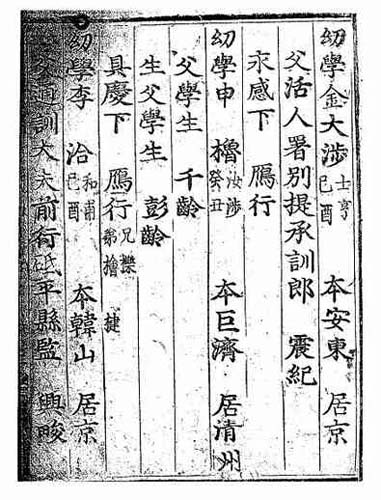 幼學金大涉 士亨 己酉 本安東 居京
父活人署別提承訓郎 震紀
永感下 鴈行
幼學申櫓 汝涉 癸丑 本巨濟 居清州
父學生 千齡
生父學生 彭齡
具慶下 鴈行 兄櫟 弟 捷
幼學李洽 和甫 己酉 本韓山 居京
父通訓大夫前行砥平縣監 興畯